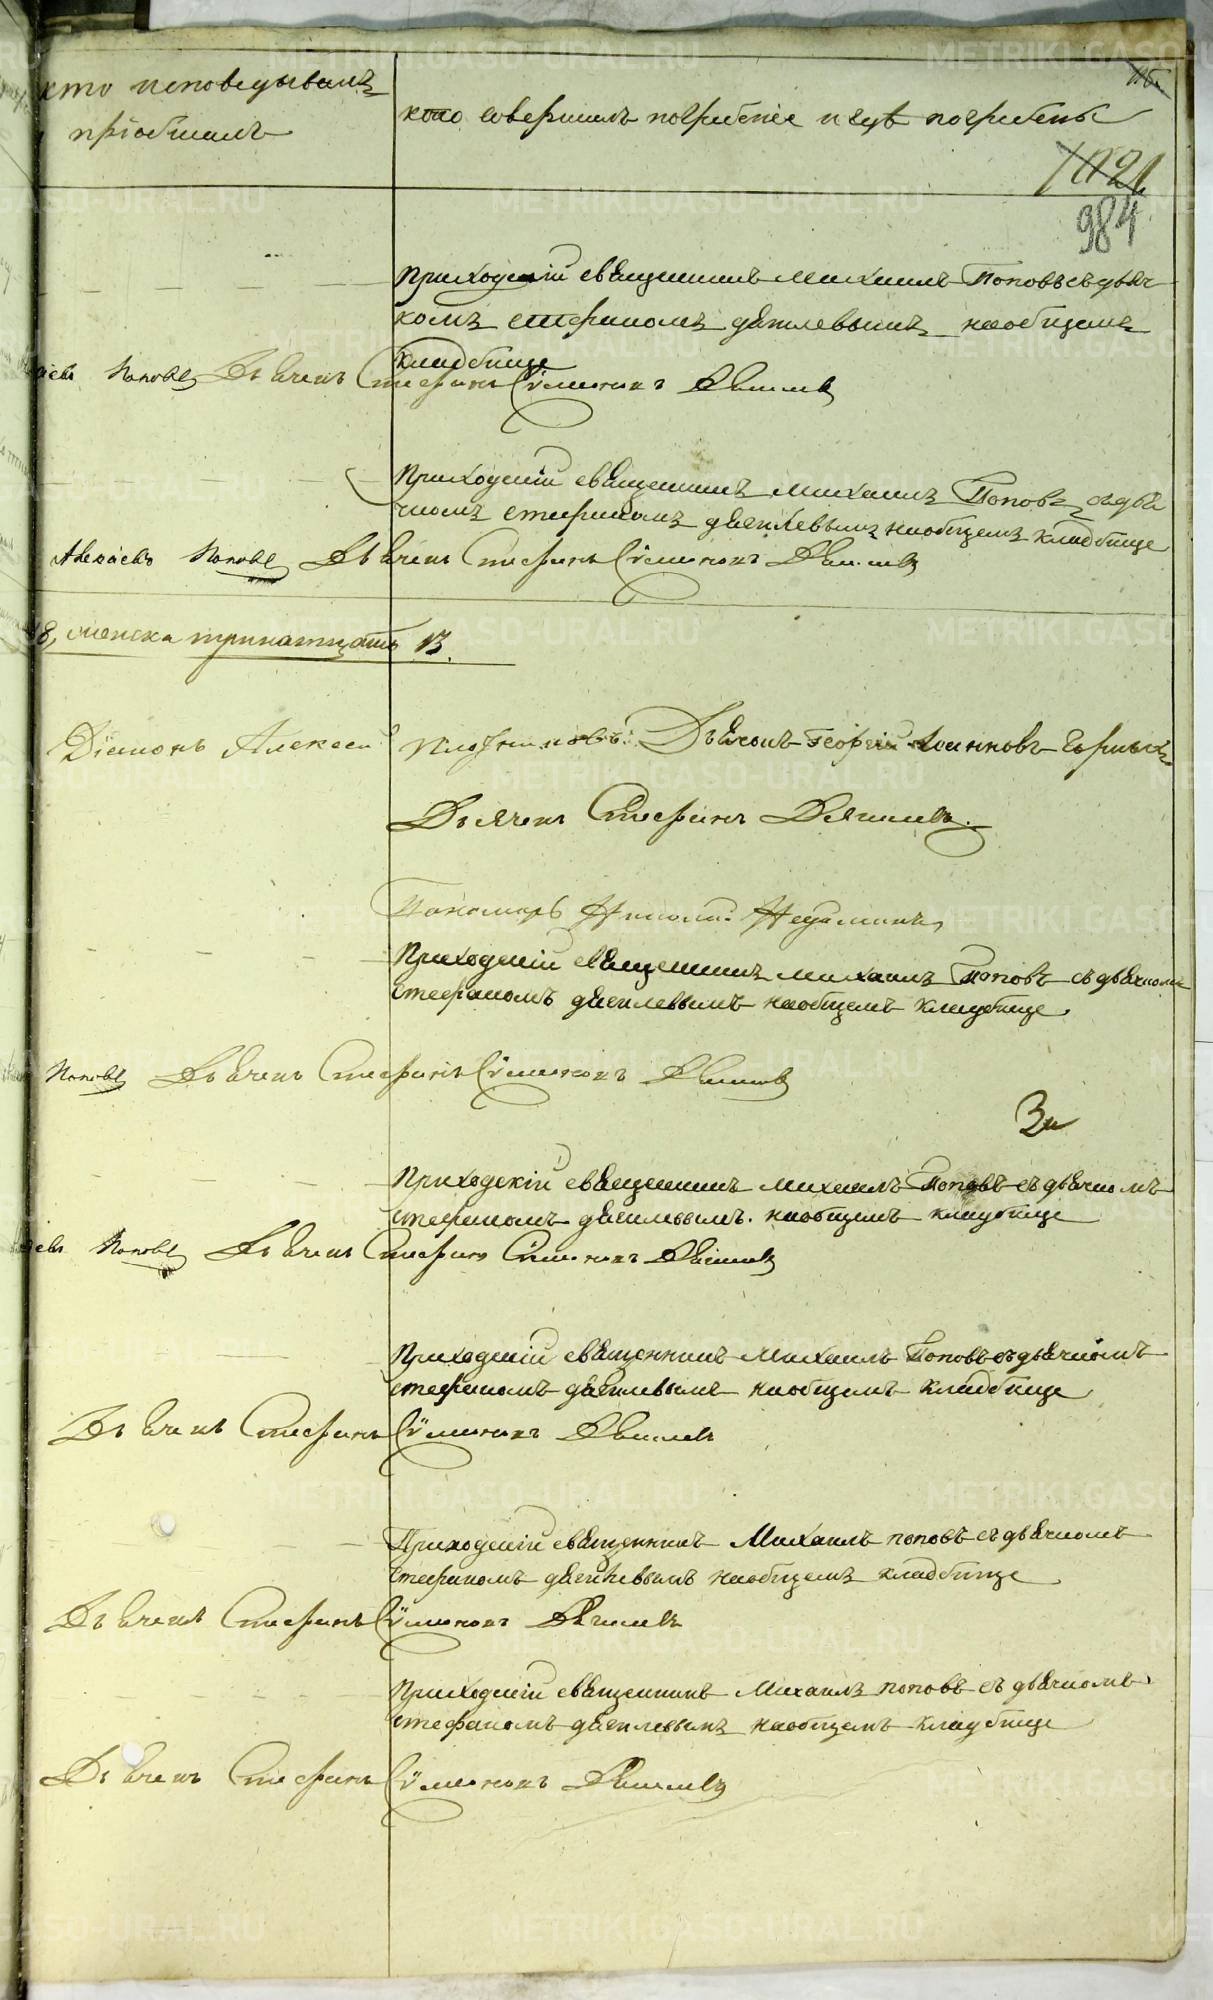 кто исповедывалъ
пріобщалъ
кто совершилъ погребеніе и гдѣ погребены
984
Приходскій священникъ Михаилъ Поповъ съ дьяч-
комъ Стефаномъ Дягилевымъ на общемъ
кладбище
Поповъ Дьячекъ Стефанъ Сѵмеоновъ Дягилевъ
Приходскій священникъ Михаилъ Поповъ съ дья
чкомъ Стефаномъ Дягилевымъ на общемъ кладбище
Алексѣевъ Поповъ Дьячекъ Стефанъ Сѵмеоновъ Дягилевъ
8, женска тринатцать 13.
Діаконъ Алексей Плотниковъ. Дьячокъ Георгій Иоанновъ
Дьячекъ Стефанъ Дягилевъ.
Пономарь
Приходскій священникъ Михаилъ Поповъ съ дьячкомъ
Стефаномъ Дягилевымъ на общемъ кладбище
Поповъ Дьячекъ Стефанъ Сѵмеоновъ Дягилевъ
Приходскій священникъ Михаилъ Поповъ съ дьячкомъ
Стефаномъ Дягилевымъ. на общемъ кладбище
Поповъ Дьячекъ Стефанъ Сѵмеоновъ Дягилевъ
Приходскій священникъ Михаилъ Поповъ съ дьячкомъ
Стефаномъ Дягилевымъ на общемъ кладбище
Дьячекъ Стефанъ Сѵмеоновъ Дягилевъ
Приходскій священникъ Михаилъ Поповъ съ дьячкомъ
Стефаномъ Дягилевымъ на общемъ кладбище
Дьячекъ Стефанъ Сѵмеоновъ Дягилевъ
Приходскій священникъ Михаилъ Поповъ съ дьячкомъ
Стефаномъ Дягилевымъ на общемъ кладбище
Дьячекъ Стефанъ Сѵмеоновъ Дягилевъ
METRIKI.GASO-URAL.RU